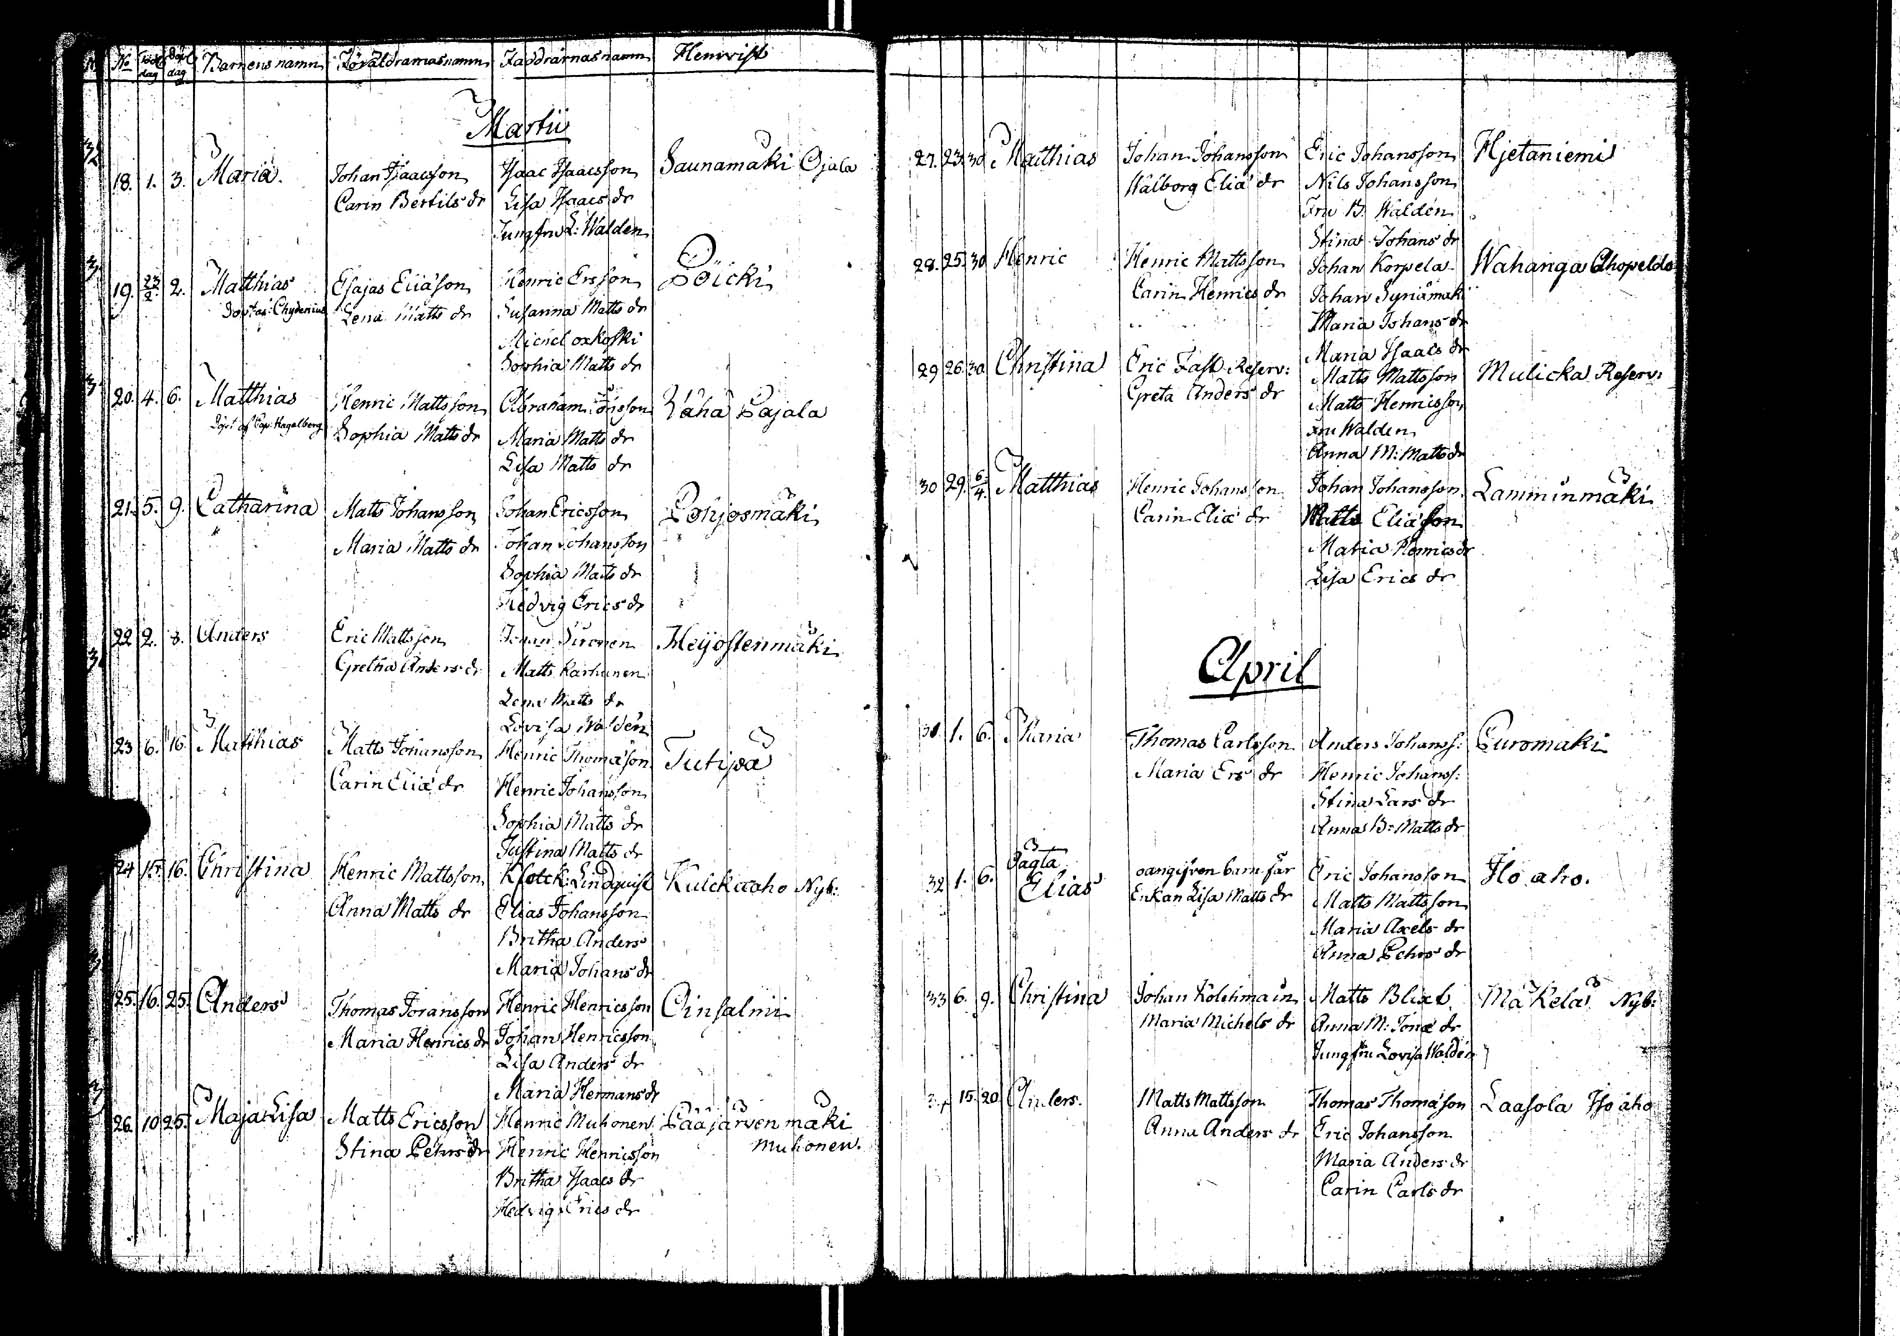 No Född dag Döpt dag Barnens namn Föräldrarnas namn Faddrarnas namn Hemvist
Martii
18. 1. 3. Maria. Johan Isaacsson Isaac Isaacsson Saunamäki Ojala
Carin Bertils dr Lisa Isaacs dr
Jungfru L: Walden
19. 22/2. 2. Matthias Esajas Eliæson Henric Ersson Pöicki
Chydenius Lena Matts dr Susanna Matts dr
Michel oxkoski
Sophia Matts dr
20. 4. 6. Matthias Henric Mattsson Abraham Wähä Pajala
Döpt af Cap: Hagelberg Sophia Matts dr Maria Matts dr
Lisa Matts dr
21. 5. 9. Catharina Matts Johansson Johan Ericsson Pohjosmäki
Maria Matts dr Johan Johansson
Sophia Matts dr
Hedvig Erics dr
22 2. 8. Anders Eric Mattsson Johan Sironen Heijostenmäki
Gretha Anders dr Matts Karhunen
Lena Matts dr
Lovisa Walden
23 6. 16. Matthias Matts Johansson Henric Thomæson Tutisa
Carin Eliæ dr Henric Johansson
Sophia Matts dr
Justina Matts dr
24 15. 16. Christina Henric Mattsson Klock: Lindquist Kulckaaho Nyb:
Anna Matts dr Elias Johansson
Britha Anders
Maria Johans dr
25. 16. 25. Anders Thomas Göransson Henric Henricsson Oinsalmi
Maria Henrics dr Johan Henricsson
Lisa Anders dr
Maria Hermans dr
26. 10 25. Maja Lisa Matts Ericsson Henric Muhonen Pääjärven mäki
Stina Pehrs dr Henric Henricsson Muhonen.
Britha Isaacs dr
Hedvig Erics dr
27. 23. 30 Matthias Johan Johansson Eric Johansson Hjetaniemi
Walborg Eliæ dr Nils Johansson
Fru B. Walden
Stina Johans dr
28. 25. 30 Henric Henric Mattsson Johan Korpela Wahanga Ahopeldo
Carin Henrics dr Johan Syriämäki
Maria Johans dr
Maria Isaacs dr
29 26. 30 Christina Eric Fast Reserv: Matts Mattsson Mulicka Reserv:
Greta Anders dr Matts Henricsson
Fru Walden
Anna M: Matts dr
30 29. 6/4. Matthias Henric Johansson Johan Johansson Lamminmäki
Carin Eliæ dr Matts Eliæson
Maria Henrics dr
Lisa Erics dr
April
31. 1. 6. Maria Thomas Carlsson Anders Johanss: Puromäki
Maria Ers dr Henric Johanss:
Stina Lars dr
Anna B: Matts dr
32 1. 6. Oagta Elias oangifven barn far Eric Johansson Iso aho.
Enkan Lisa Matts dr Matts Mattsson
Maria Axels dr
Anna Pehrs dr
33 6. 9. Christina Johan Kolehmain Matts Blixt Mäkelä Nyb:
Maria Michels dr Anna M: Jonæ dr
Jungfru Lovisa Walden
15. 20 Anders. Matts Mattsson Thomas Thomæson Laasola Iso aho
Anna Anders dr Eric Johansson
Maria Anders dr
Carin Carls dr